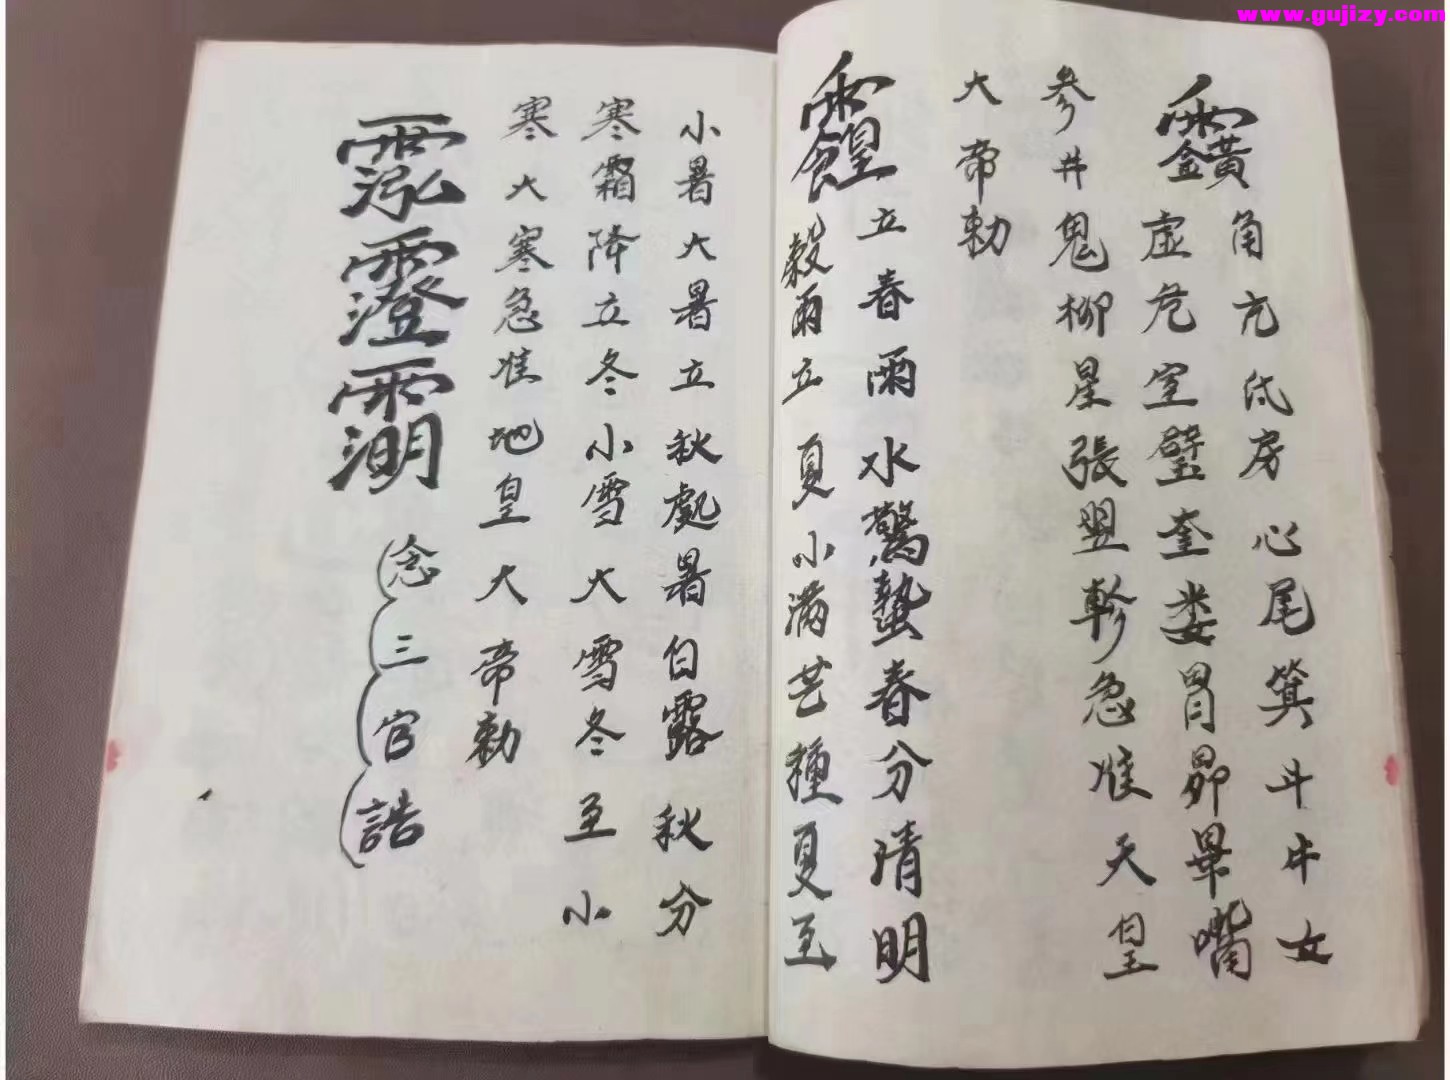 www.gujizy.com
角亢氐房心尾箕斗牛女
虚危室壁奎娄胃昴畢嘴
参井鬼柳星張盟軫急准天皇
大帝勅
立春雨水驚蟄春分清明
穀雨立夏小滿芒種夏至
小暑大暑立秋處暑白露秋分
寒霜降立冬小雪大雪冬至小
寒大寒急准地皇大帝勅
念三官誥